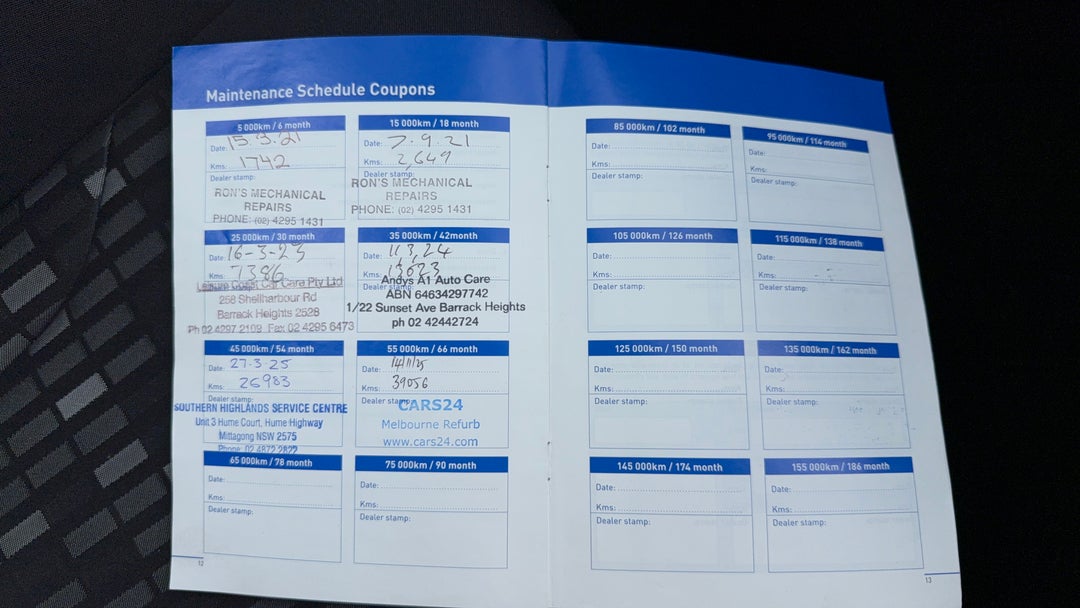 Maintenance Schedule Coupons
5 000km / 6 month
Date: 15.3.21
Kms: 1742
Dealer stamp:
RON'S MECHANICAL
REPAIRS
PHONE: (02) 4295 1431
15 000km / 18 month
Date: 7.9.21
Kms: 2,649
Dealer stamp:
RON'S MECHANICAL
REPAIRS
PHONE: (02) 4295 1431
25 000km / 30 month
Date: 16-3-23
Kms: 7386
Leisure Coast Car Care Pty Ltd
258 Shellharbour Rd
Barrack Heights 2528
Ph 02 4297 2193 Fax 02 4295 6473
35 000km / 42month
Date:
Kms: 13623
Dealer stamp:
Andys A1 Auto Care
ABN 64634297742
1/22 Sunset Ave Barrack Heights
ph 02 42442724
45 000km / 54 month
Date: 27.3.25
Kms: 26983
SOUTHERN HIGHLANDS SERVICE CENTRE
Unit 3 Hume Court, Hume Highway
Mittagong NSW 2575
Phone: 02 4872 2822
55 000km / 66 month
Date: 14/11/25
Kms: 39056
Dealer stamp:
CARS24
Melbourne Refurb
www.cars24.com
65 000km / 78 month
Date:
Kms:
Dealer stamp:
75 000km / 90 month
Date:
Kms:
Dealer stamp:
12
85 000km / 102 month
Date:
Kms:
Dealer stamp:
95 000km / 114 month
Date:
Kms:
Dealer stamp:
105 000km / 126 month
Date:
Kms:
Dealer stamp:
115 000km / 138 month
Date:
Kms:
Dealer stamp:
125 000km / 150 month
Date:
Kms:
Dealer stamp:
135 000km / 162 month
Date:
Kms:
Dealer stamp:
145 000km / 174 month
Date:
Kms:
Dealer stamp:
155 000km / 186 month
Date:
Kms:
Dealer stamp:
13